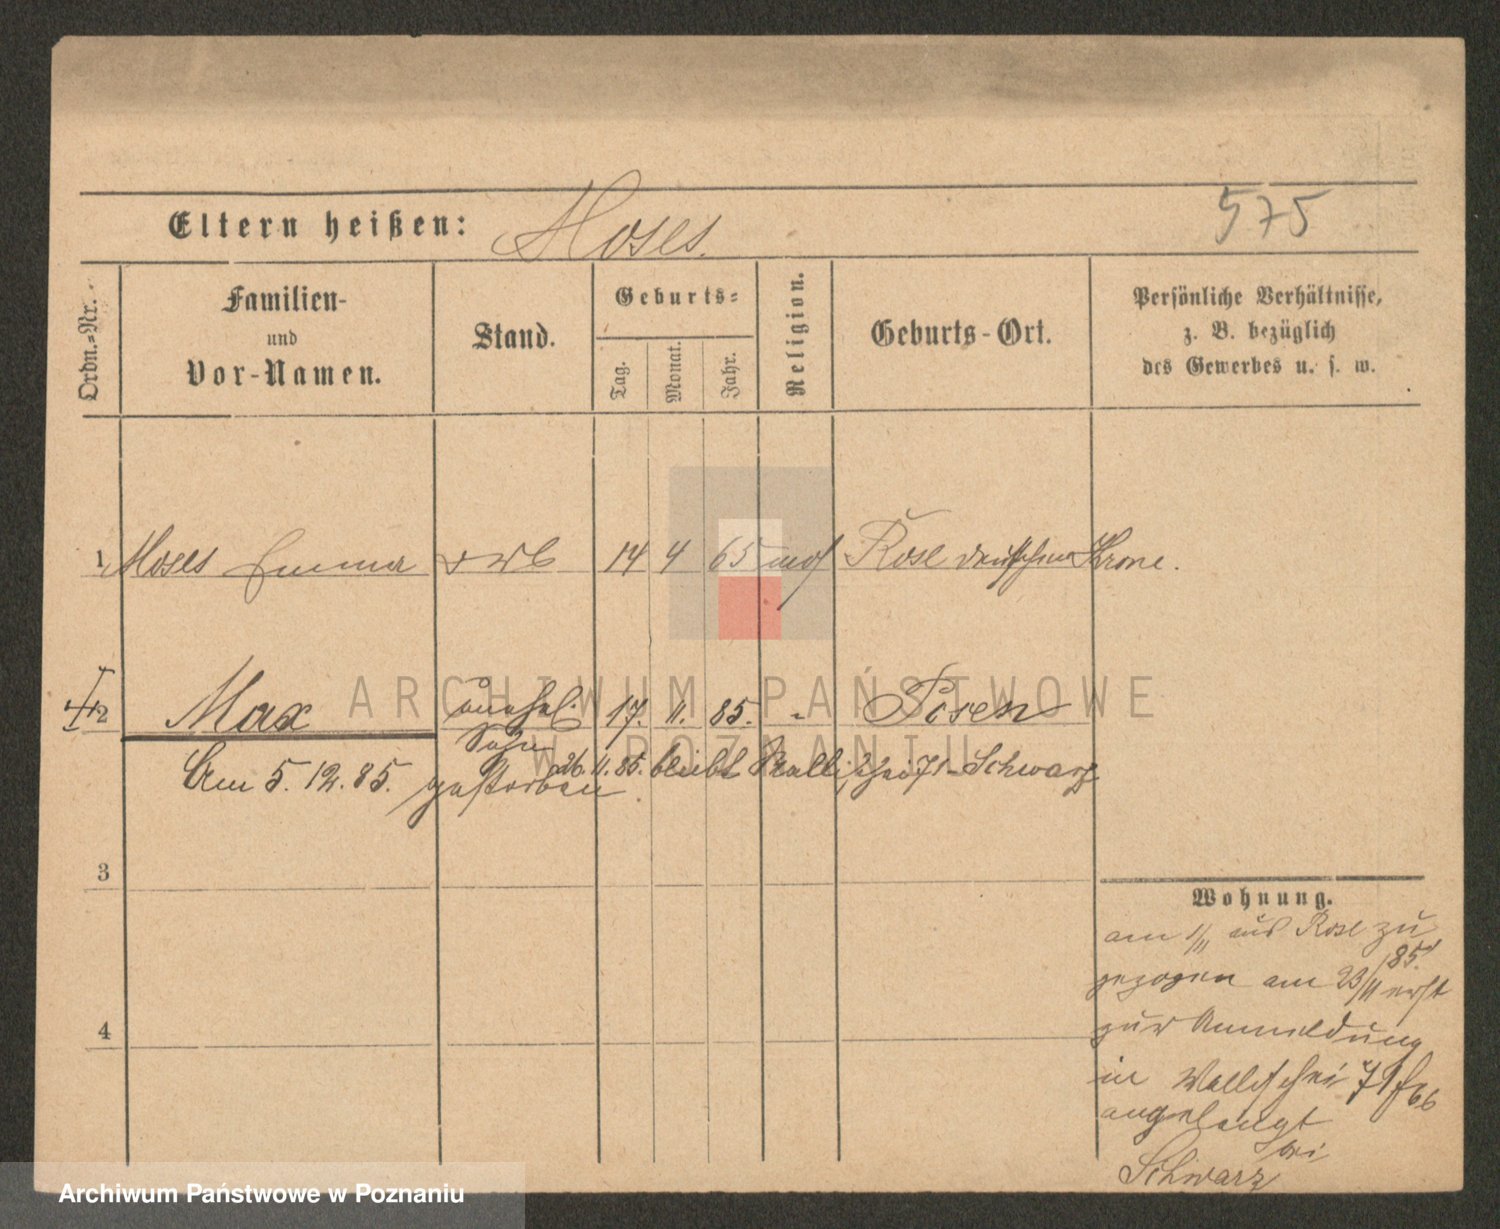 575
Eltern heißen: Moses.
Ordn.-Nr.
Familien-
und
Vor-Namen.
Stand.
Geburts-
Tag.
Monat.
Jahr.
Religion.
Geburts-Ort.
Persönliche Verhältnisse,
z. B. bezüglich
des Gewerbes u. s. w.
1 Moses Emma 14 4 65 mos Rose Krone.
2 Max unehel. 17. 11. 85. " Posen
Sohn
26. 11. 85. bleibt Wallischei 71 - Schwarz
Am 5. 12. 85. gestorben
3
4
Wohnung.
am 1/11 aus Rose zu
gezogen am 23/11 85. erst
zur Anmeldung
in Wallischei 71
angelangt
bei
Schwarz
ARCHIWUM PAŃSTWOWE
W POZNANIU
Archiwum Państwowe w Poznaniu